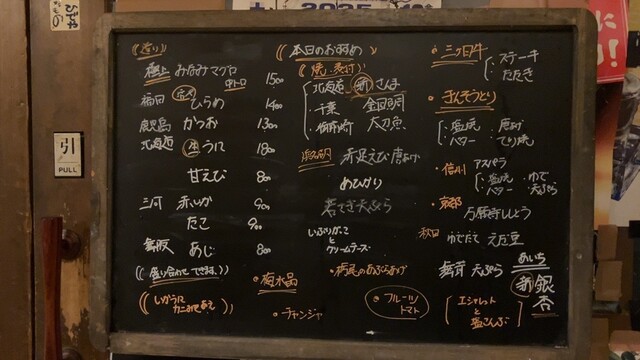 引
PULL
2025
造り
極上 みなみマグロ 中トロ 1500
ひらめ 1400
鹿児島 かつお 1300
北海道 うに 1800
甘えび 800
三河 赤いか 900
たこ 900
舞阪 あじ 800
盛り合わせできます。
本日のおすすめ
焼・煮付
北海道 新 さんま
千葉 金目鯛
御前崎 太刀魚
浜名湖 赤足えび唐あげ
めひかり
若さぎ天ぷら
いぶりがっこと
クリームチーズ
栃尾のあぶらあげ
梅水晶
チャンジャ
フルーツ
トマト
三ヶ日牛
ステーキ
たたき
塩焼 唐あげ
バター てり焼
信州 アスパラ
塩焼 ゆで
バター 天ぷら
京都 万願寺しとう
秋田 ゆでたて えだ豆
舞茸 天ぷら
あいち
新 銀杏
エシャレット
と
塩こんぶ